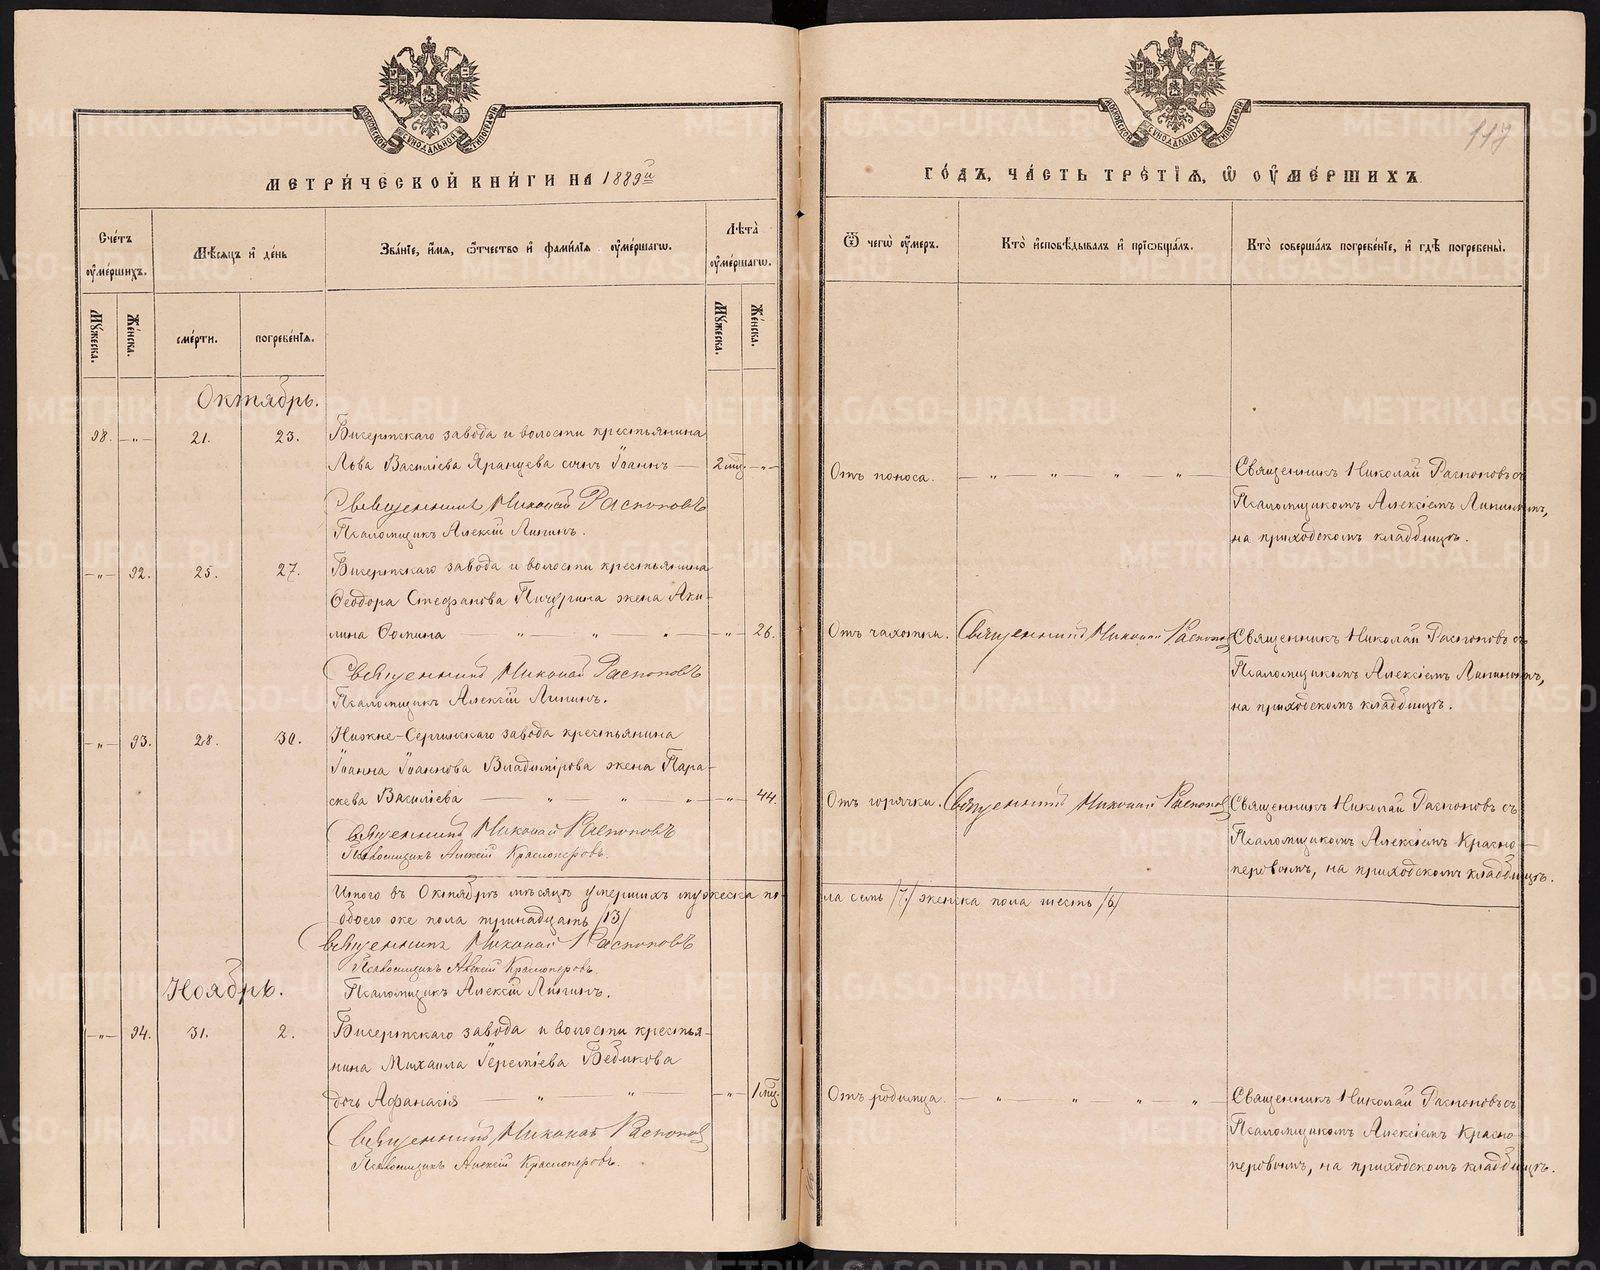 117
МЕТРИЧЕСКОЙ КНИГИ НА 1889й
ГОДЪ, ЧАСТЬ ТРЕТІЯ, Ѿ ОУМЕРШИХЪ.
Счетъ оумершихъ.
Мѣсяцъ и день
Званіе, имя, ѿтчество и фамилія оумершагѡ.
Лѣта оумершагѡ.
Ѿ чегѡ оумеръ.
Кто исповѣдывалъ и пріѡбщалъ.
Кто совершалъ погребеніе, и гдѣ погребены.
Мужеска.
Женска.
смерти.
погребенія.
Мужеска.
Женска.
Октябрь.
98. —"— 21. 23. Бисертскаго завода и волости крестьянина
Льва Василіева Яранцева сынъ Іоаннъ — 2 мц. —"—
Отъ поноса. — " — " — " — " —
Священникъ Николай Распоповъ съ
Псаломщикомъ Алексіемъ Липинымъ,
на приходскомъ кладбищѣ.
Священникъ Николай Распоповъ
Псаломщикъ Алексій Липинъ.
—"— 92. 25. 27. Бисертскаго завода и волости крестьянина
Ѳеодора Стефанова Пичугина жена Аки-
лина Фомина — " — " — " — —"— 26.
Отъ чахотки. Священникъ Николай Распоповъ
Священникъ Николай Распоповъ съ
Псаломщикомъ Алексіемъ Липинымъ,
на приходскомъ кладбищѣ.
Священникъ Николай Распоповъ
Псаломщикъ Алексій Липинъ.
—"— 93. 28. 30. Нижне-Сергинскаго завода крестьянина
Іоанна Іоаннова Владимірова жена Пара-
скева Василіева — " — " — " — —"— 44.
Отъ горячки. Священникъ Николай Распоповъ
Священникъ Николай Распоповъ съ
Псаломщикомъ Алексіемъ Красно-
перовымъ, на приходскомъ кладбищѣ.
Священникъ Николай Распоповъ
Псаломщикъ Алексій Красноперовъ.
Итого въ Октябрѣ мѣсяцѣ умершихъ мужеска по-
ла семь /7/ женска пола шесть /6/
обоего же пола тринадцать /13/
Священникъ Николай Распоповъ
Псаломщикъ Алексій Красноперовъ.
Псаломщикъ Алексій Липинъ.
Ноябрь.
—"— 94. 31. 2. Бисертскаго завода и волости крестья-
нина Михаила Іереміева Бедикова
дочь Афанасія — " — " — —"— 1 мц.
Отъ родимца. — " — " — " — " —
Священникъ Николай Распоповъ съ
Псаломщикомъ Алексіемъ Красно-
перовымъ, на приходскомъ кладбищѣ.
Священникъ Николай Распоповъ
Псаломщикъ Алексій Красноперовъ.
METRIKI.GASO-URAL.RU